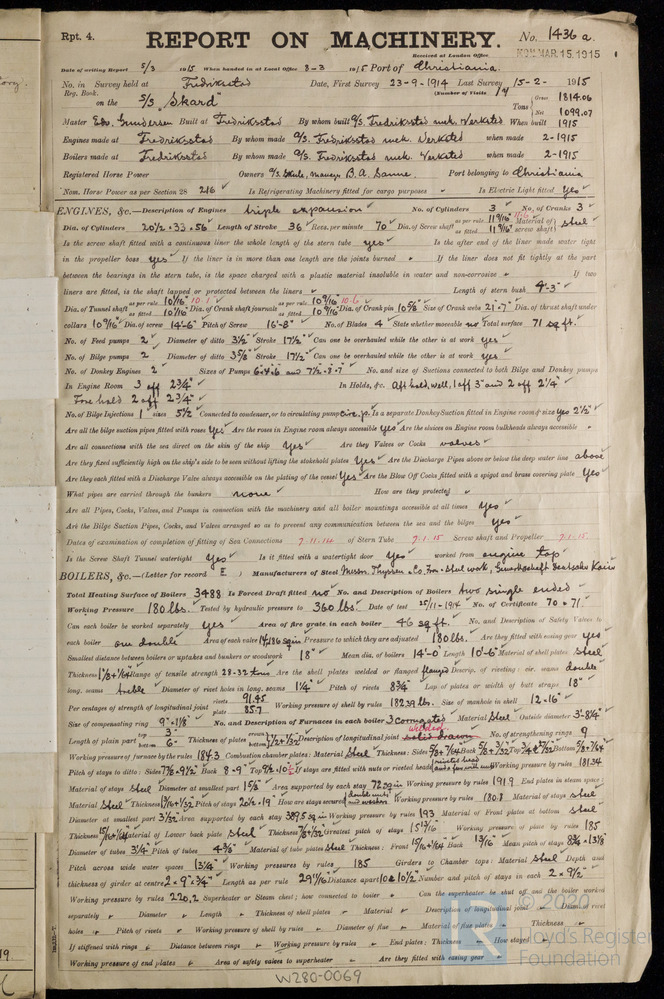 Rpt. 4.
REPORT ON MACHINERY.
No. 1436 a.
Received at London Office MON. MAR. 15. 1915
Date of writing Report 5/3 1915 When handed in at Local Office 8-3 1915 Port of Christiania.
No. in Survey held at Fredriksstad Date, First Survey 23-9-1914 Last Survey 15-2-1915
Reg. Book. (Number of Visits
on the S/S "Skard" Tons Gross 1814.06
Net 1099.07
Master Edv. Gundersen Built at Fredriksstad By whom built A/S. Fredriksstad mek. Verksted When built 1915
Engines made at Fredriksstad By whom made A/S. Fredriksstad mek. Verksted when made 2-1915
Boilers made at Fredriksstad By whom made A/S. Fredriksstad mek. Verksted when made 2-1915
Registered Horse Power Owners A/S. Skule, B. A. Sanne. Port belonging to Christiania
Nom. Horse Power as per Section 28 216 Is Refrigerating Machinery fitted for cargo purposes Is Electric Light fitted Yes
ENGINES, &c.—Description of Engines triple expansion No. of Cylinders 3 No. of Cranks 3
Dia. of Cylinders 20½-33-56 Length of Stroke 36 Revs. per minute 70 Dia. of Screw shaft as per rule 11 9/16" as fitted 11 9/16" Material of screw shaft steel
Is the screw shaft fitted with a continuous liner the whole length of the stern tube yes Is the after end of the liner made water tight
in the propeller boss yes If the liner is in more than one length are the joints burned If the liner does not fit tightly at the part
between the bearings in the stern tube, is the space charged with a plastic material insoluble in water and non-corrosive If two
liners are fitted, is the shaft lapped or protected between the liners Length of stern bush 4'-3"
Dia. of Tunnel shaft as per rule 10 1/16" 10.1 as fitted 10 1/16" Dia. of Crank shaft journals as per rule 10 9/16" 10.6 as fitted 10 9/16" Dia. of Crank pin 10 5/8" Size of Crank webs 21"-7" Dia. of thrust shaft under
collars 10 9/16" Dia. of screw 14'-6" Pitch of Screw 16'-8" No. of Blades 4 State whether moveable no Total surface 71 sq. ft.
No. of Feed pumps 2 Diameter of ditto 3½" Stroke 17½" Can one be overhauled while the other is at work yes
No. of Bilge pumps 2 Diameter of ditto 3 5/8" Stroke 17½" Can one be overhauled while the other is at work yes
No. of Donkey Engines 2 Sizes of Pumps 6-4-6 and 7½-8-7 No. and size of Suctions connected to both Bilge and Donkey pumps
In Engine Room 3 off 2¾" In Holds, &c. Aft hold, well, 1 off 3" and 2 off 2¼"
Fore hold 2 off 2¾"
No. of Bilge Injections 1 sizes 5½ Connected to condenser, or to circulating pump circ. p. Is a separate Donkey Suction fitted in Engine room & size Yes 2½"
Are all the bilge suction pipes fitted with roses Yes Are the roses in Engine room always accessible Yes Are the sluices on Engine room bulkheads always accessible
Are all connections with the sea direct on the skin of the ship Yes Are they Valves or Cocks valves
Are they fixed sufficiently high on the ship's side to be seen without lifting the stokehold plates Yes Are the Discharge Pipes above or below the deep water line above
Are they each fitted with a Discharge Valve always accessible on the plating of the vessel Yes Are the Blow Off Cocks fitted with a spigot and brass covering plate Yes
What pipes are carried through the bunkers none How are they protected
Are all Pipes, Cocks, Valves, and Pumps in connection with the machinery and all boiler mountings accessible at all times Yes
Are the Bilge Suction Pipes, Cocks, and Valves arranged so as to prevent any communication between the sea and the bilges Yes
Dates of examination of completion of fitting of Sea Connections 7.11.14 of Stern Tube 7.1.15 Screw shaft and Propeller 7.1.15
Is the Screw Shaft Tunnel watertight Yes Is it fitted with a watertight door Yes worked from engine top
BOILERS, &c.—(Letter for record E) Manufacturers of Steel Messrs. Thyssen & Co. Iron & steel work, Gewerkschaft Deutscher Kaiser
Total Heating Surface of Boilers 3488 Is Forced Draft fitted no No. and Description of Boilers two single ended
Working Pressure 180 lbs. Tested by hydraulic pressure to 360 lbs Date of test 25/11-1914 No. of Certificate 70 & 71
Can each boiler be worked separately yes Area of fire grate in each boiler 46 sq. ft. No. and Description of Safety Valves to
each boiler one double Area of each valve Pressure to which they are adjusted 180 lbs. Are they fitted with easing gear yes
Smallest distance between boilers or uptakes and bunkers or woodwork 18" Mean dia. of boilers 14'-0" Length 10'-6" Material of shell plates steel
Thickness 1 1/8+1/64 Range of tensile strength 28-32 tons Are the shell plates welded or flanged flanged Descrip. of riveting: cir. seams double
long. seams treble Diameter of rivet holes in long. seams 1¼" Pitch of rivets 8¾" Lap of plates or width of butt straps 18"
Per centages of strength of longitudinal joint rivets 91.45 plate 85.7 Working pressure of shell by rules 182.34 lbs. Size of manhole in shell 12"-16"
Size of compensating ring 9"-1 1/8" No. and Description of Furnaces in each boiler 3 Corrugated Material Steel Outside diameter 3'-8¼"
Length of plain part top 3" bottom 6" Thickness of plates crown bottom 1/2+1/32 Description of longitudinal joint welded No. of strengthening rings 9
Working pressure of furnace by the rules 184.3 Combustion chamber plates: Material Steel Thickness: Sides 5/8+1/64 Back 5/8+3/32 Top 3/4+7/32 Bottom 5/8+7/64
Pitch of stays to ditto: Sides 7 7/8-9½" Back 8"-9" Top 9¼-10½ If stays are fitted with nuts or riveted heads riveted head and a few with nuts Working pressure by rules 181.34
Material of stays Steel Diameter at smallest part 1 5/8" Area supported by each stay 72 sq in Working pressure by rules 191.9 End plates in steam space:
Material Steel Thickness Pitch of stays 20¼-19" How are stays secured double nuts and washers Working pressure by rules 180.8 Material of stays steel
Diameter at smallest part 3 1/32" Area supported by each stay 389.5 sq in Working pressure by rules 193 Material of Front plates at bottom steel
Thickness 15/16+1/64 Material of Lower back plate Steel Thickness 7/8+1/32 Greatest pitch of stays 15 13/16" Working pressure of plate by rules 185
Diameter of tubes 3¼" Pitch of tubes 4 3/8" Material of tube plates Steel Thickness: Front 15/16+1/64 Back 13/16 Mean pitch of stays 8¾-13 1/8"
Pitch across wide water spaces 13¾" Working pressures by rules 185 Girders to Chamber tops: Material Steel Depth and
thickness of girder at centre 2-9"-¾" Length as per rule 29 1/16 Distance apart 10 & 10½" Number and pitch of stays in each 2-9½"
Working pressure by rules 220.2 Superheater or Steam chest; how connected to boiler Can the superheater be shut off and the boiler worked
separately Diameter Length Thickness of shell plates Material Description of longitudinal joint Diam. of rivet
holes Pitch of rivets Working pressure of shell by rules Diameter of flue Material of flue plates Thickness
If stiffened with rings Distance between rings Working pressure by rules End plates: Thickness How stayed
Working pressure of end plates Area of safety valves to superheater Are they fitted with easing gear
W280-0069
© 2020
Lloyd's Register
Foundation